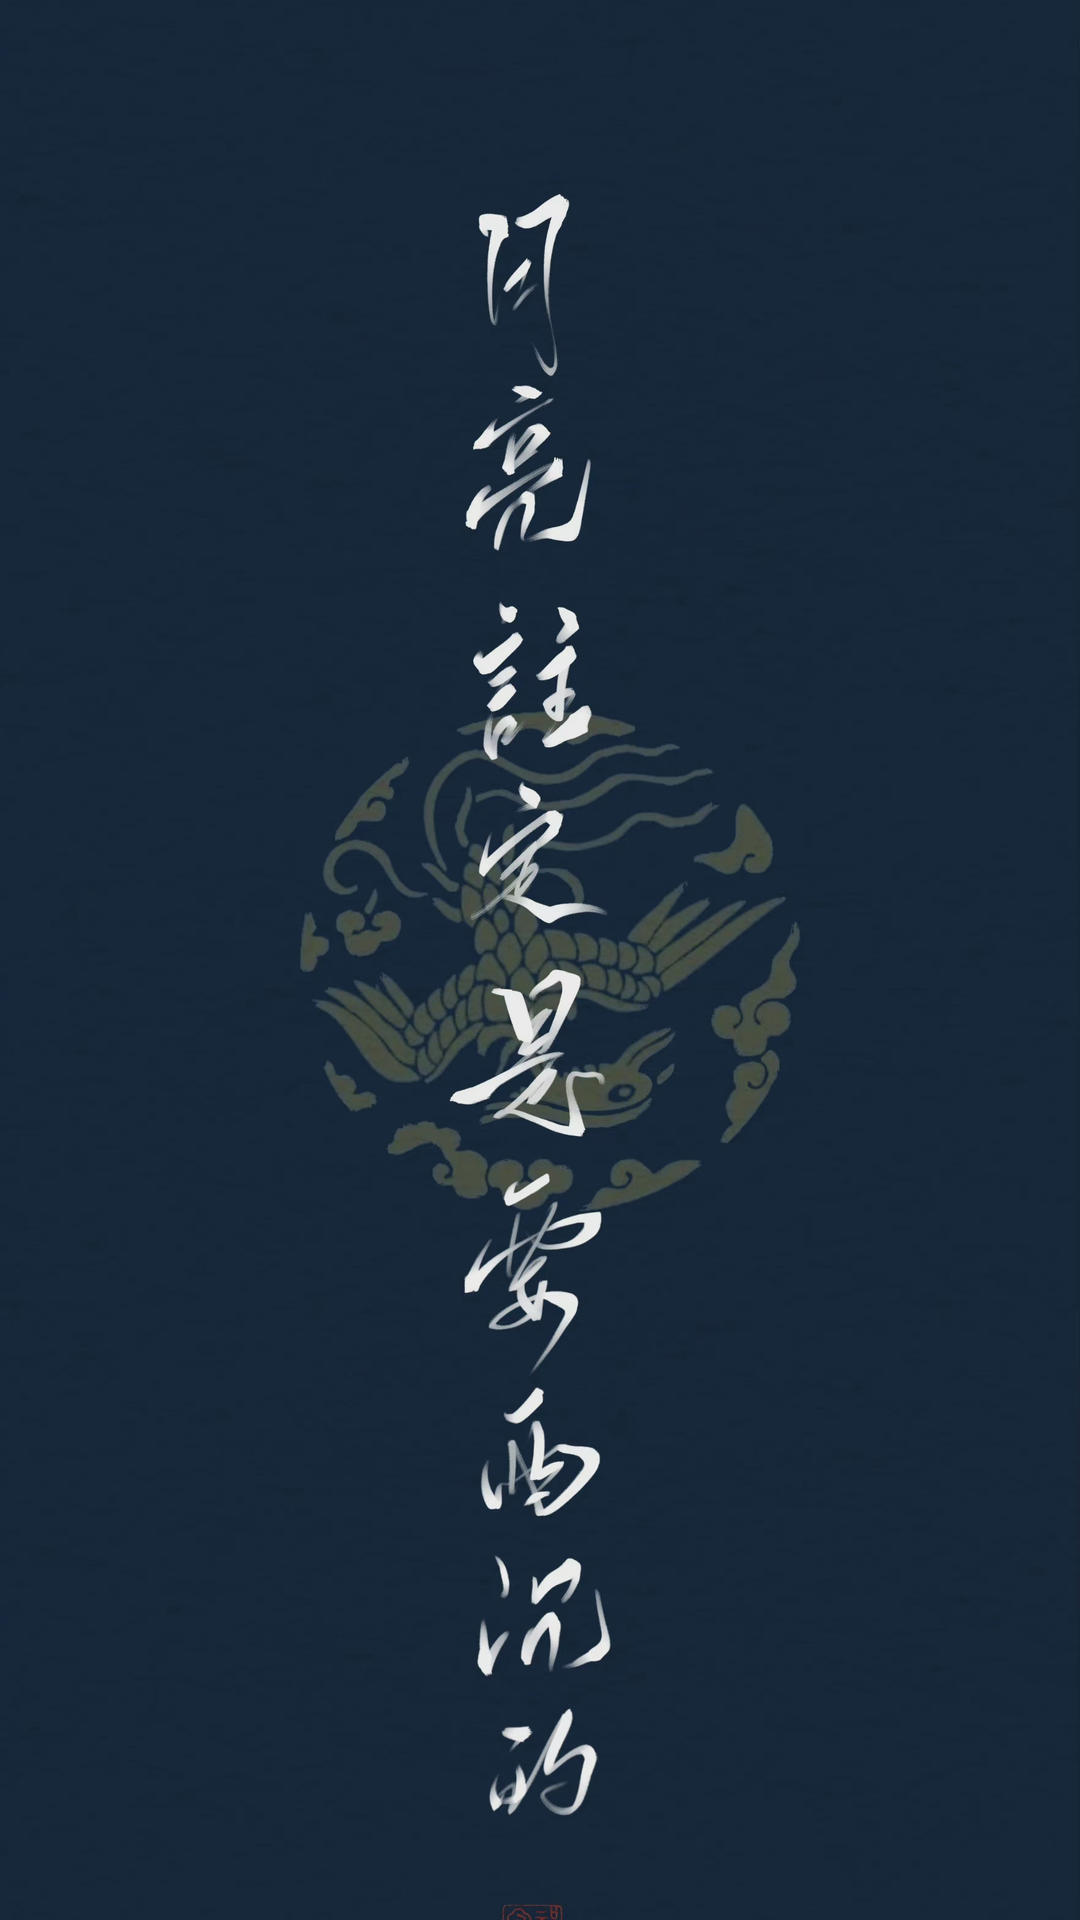 月亮註定是要西沉的